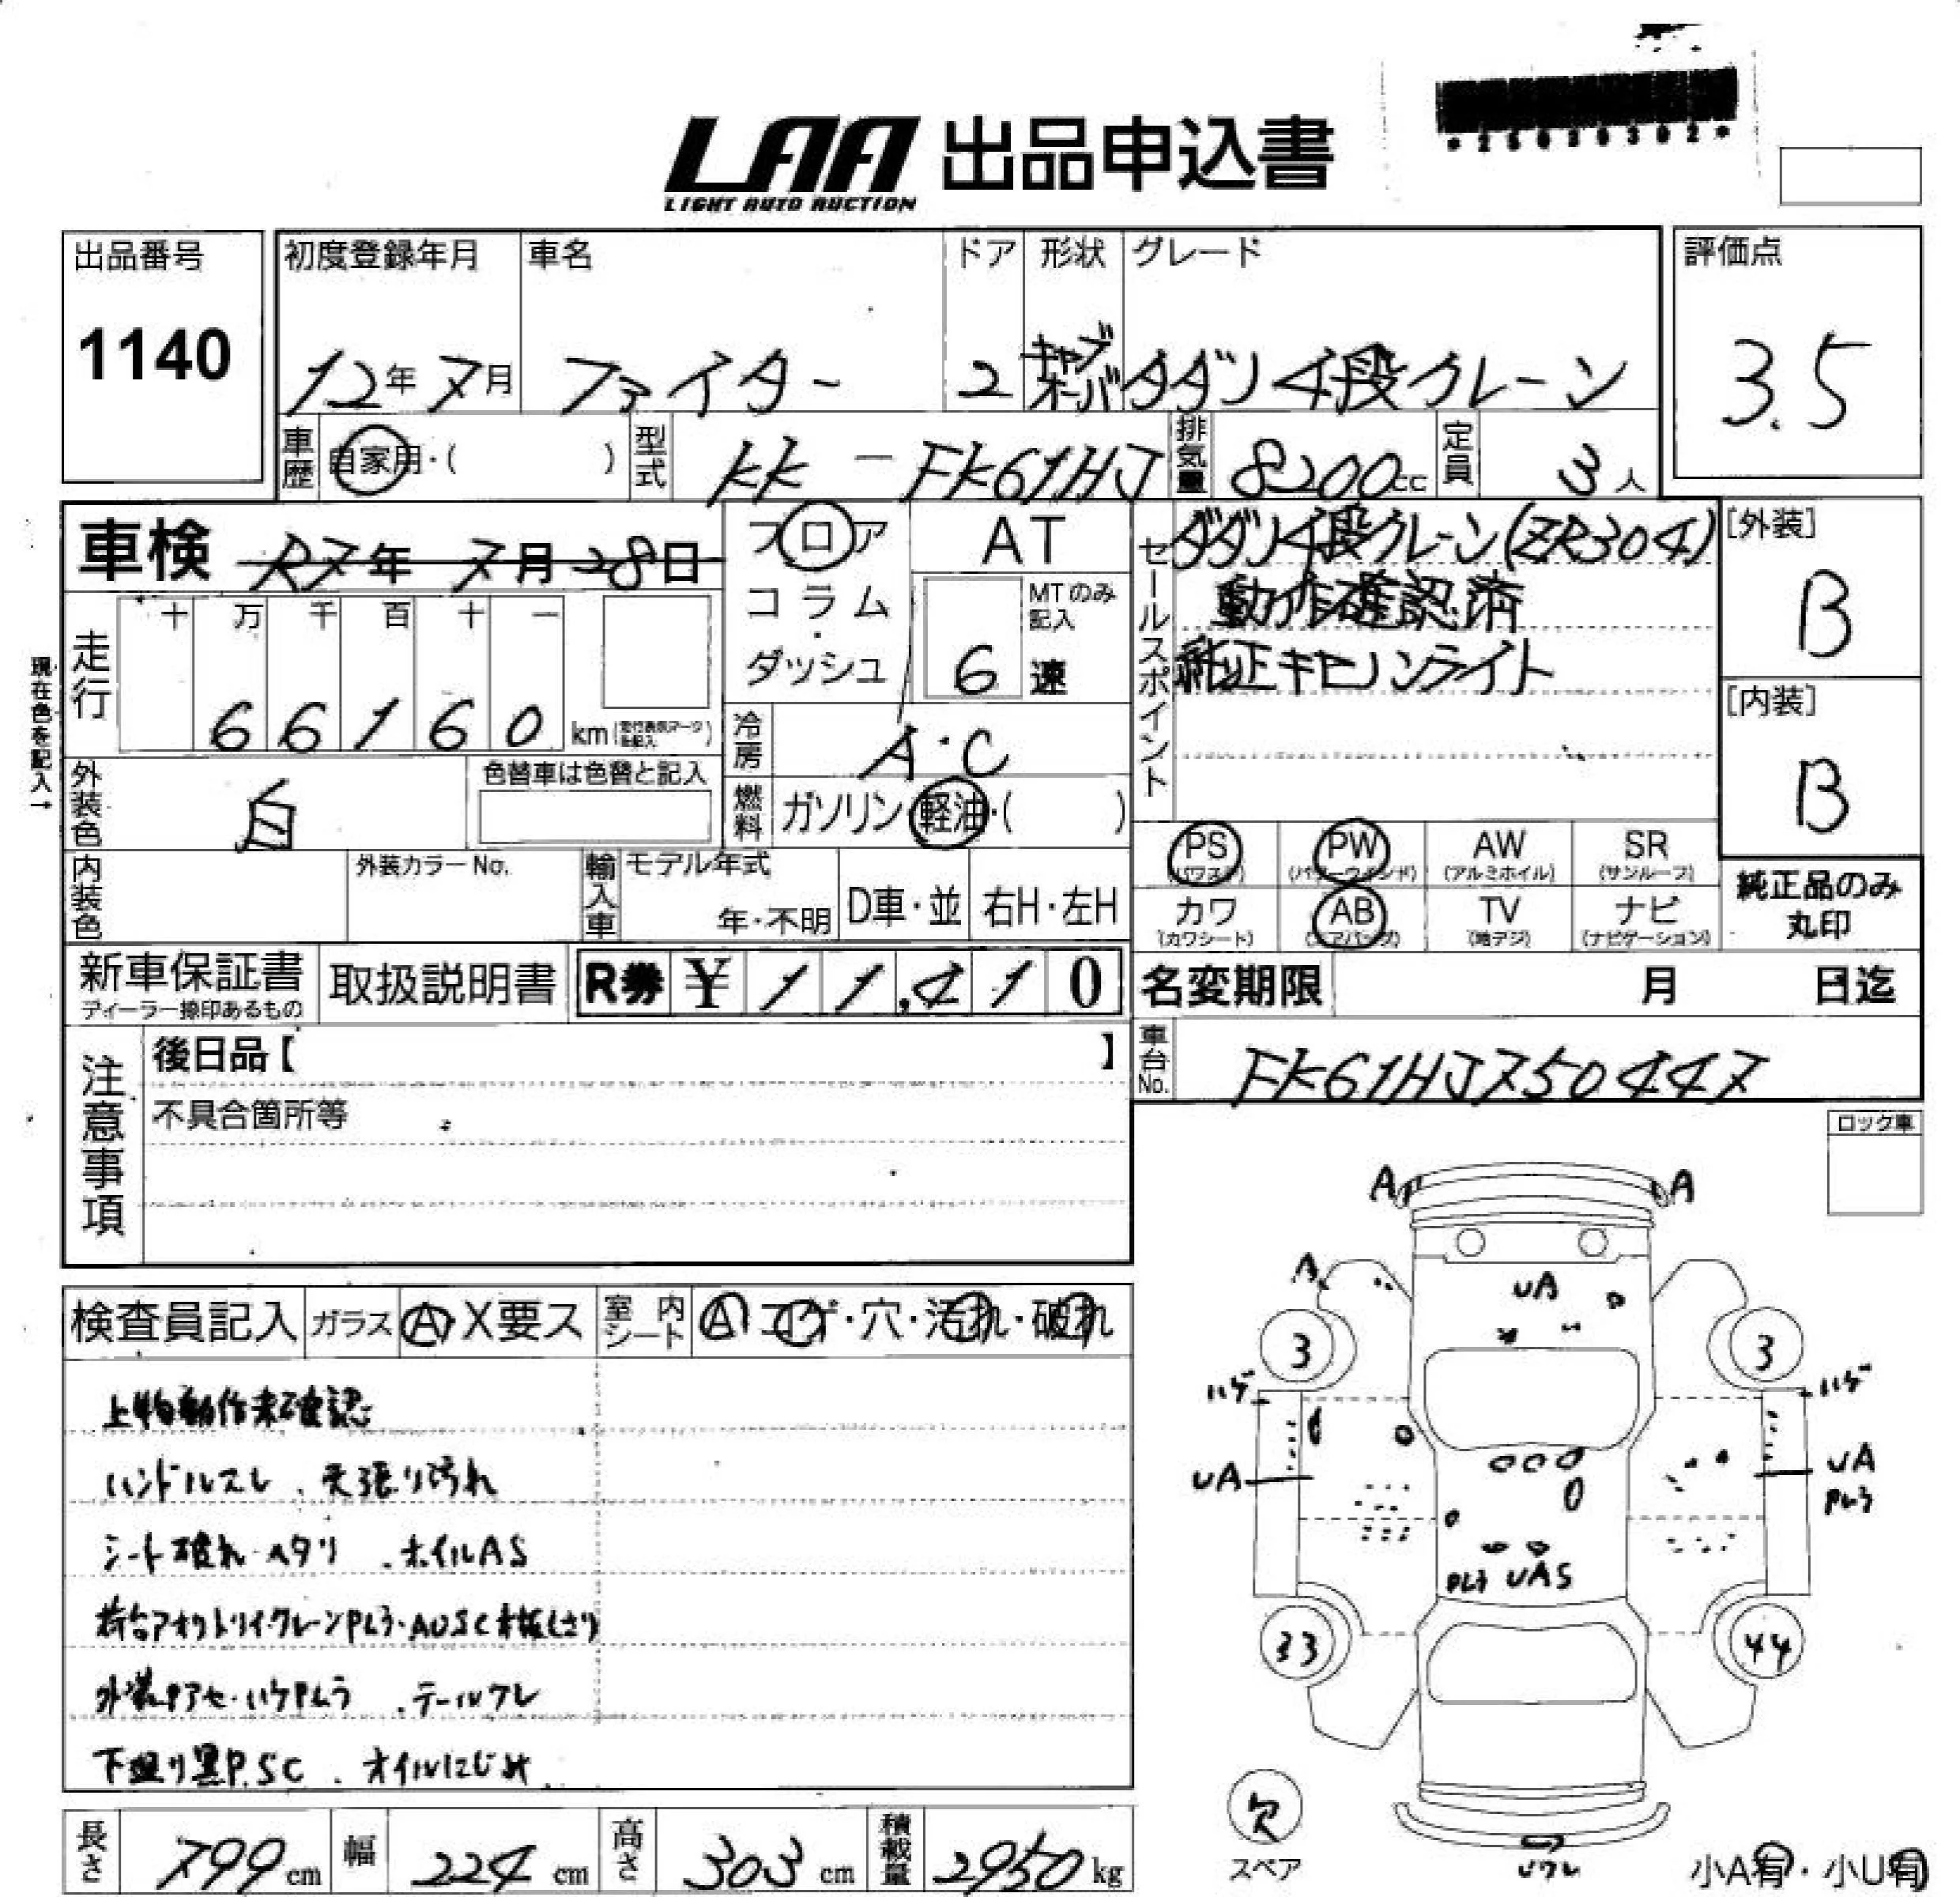 *25020302*
LAA 出品申込書
LIGHT AUTO AUCTION
出品番号
1140
初度登録年月
12年7月
車名
ファイター
ドア
2
形状
キャブオーバ
グレード
タダノ4段クレーン
評価点
3.5
車歴
自家用・( )
型式
KK-FK61HJ
排気量
8200cc
定員
3人
車検 R7年 7月28日
フロア
コラム
・
ダッシュ
AT
MTのみ記入
6速
セールスポイント
タダノ4段クレーン(ZR304)
動作確認済
純正キセノンライト
[外装]
B
[内装]
B
現在色を記入→
走行
十 万 千 百 十 一
6 6 1 6 0 km
冷房
A・C
外装色
白
色替車は色替と記入
燃料
ガソリン・軽油・( )
PS
(パワステ)
PW
(パワーウインド)
AW
(アルミホイル)
SR
(サンルーフ)
カワ
(カワシート)
AB
(エアバッグ)
TV
(地デジ)
ナビ
(ナビゲーション)
純正品のみ
丸印
内装色
外装カラーNo.
輸入車
モデル年式
年・不明
D車・並
右H・左H
新車保証書
ディーラー捺印あるもの
取扱説明書
R券 ¥ 1 1,4 1 0
名変期限 月 日迄
注意事項
後日品【 】
不具合箇所等
車台No.
FK61HJ750447
ロック車
検査員記入
ガラス
A X要ス
室内シート
A コゲ・穴・汚れ・破れ
上物動作未確認
ハンドルスレ、天張り汚れ
シート破れ・ヘタリ、ホイルAS
外装色アセ・ハゲPムラ、テールワレ
下廻り黒P.SC、オイルにじみ
A A
A
UA
3 3
ハゲ ハゲ
UA UA
Pムラ
Pムラ UAS
33 44
欠
スペア
Uワレ
小A有・小U有
長さ 799cm
幅 224cm
高さ 303cm
積載量 2950kg